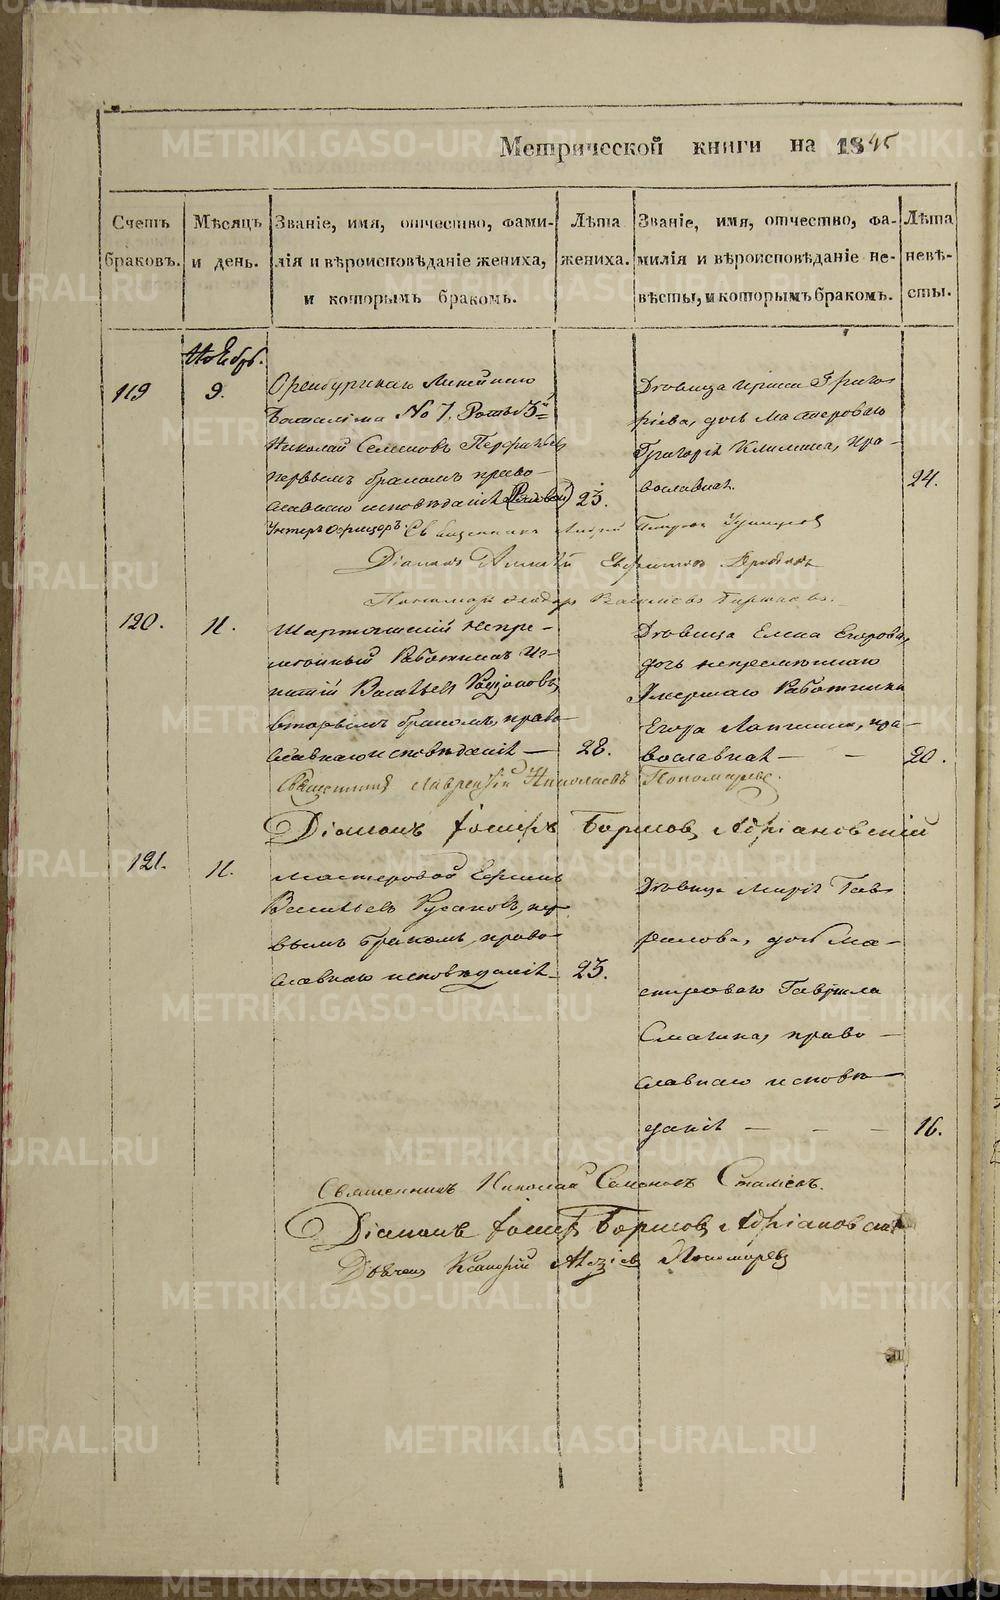 Метрической книги на 1845
Счетъ браковъ.
Мѣсяцъ и день.
Званіе, имя, отчество, фами-
лія и вѣроисповѣданіе жениха,
и которымъ бракомъ.
Лѣта жениха.
Званіе, имя, отчество, фа-
милія и вѣроисповѣданіе не-
вѣсты, и которымъ бракомъ.
Лѣта невѣ-
сты.
Ноябр.
119
9.
Оренбурскаго Линейнаго
Баталіона No 7. Роты 3й
Николай Семеновъ
первымъ бракомъ право-
славнаго исповѣданія (Рядовой)
Унтеръ Офицеръ.
23.
Дѣвица Ирина Григо-
рьева, дочь Мастероваго
Григорія Климина, пра-
вославная.
24.
Священникъ Андрей Петровъ
Діаконъ Алексѣй
Пономарь Феодоръ Васильевъ
120.
11.
Шарташскій непре-
мѣнный Работникъ Иг-
натій Васильевъ Родіоновъ,
вторымъ бракомъ, право-
славнаго исповѣданія —
28.
Дѣвица Елена Егорова,
дочь непремѣннаго
Умершаго Работника
Егора Лапшина, пра-
вославная — —
20.
Священникъ Лаврентій Николаевъ Пономаревъ.
Діаконъ Іосифъ Борисовъ Адріановскій
121.
11.
Мастеровой Ефимъ
Васильевъ Русановъ, пер-
вымъ бракомъ, право-
славнаго исповѣданія
23.
Дѣвица Марія Гав-
рилова, дочь Ма-
стероваго Гаврила
Смагина, право-
славнаго исповѣ-
данія — — —
16.
Священникъ Николай Симоновъ
Діаконъ Іосифъ Борисовъ Адріановскій
Дьячекъ Пономаревъ
METRIKI.GASO-URAL.RU